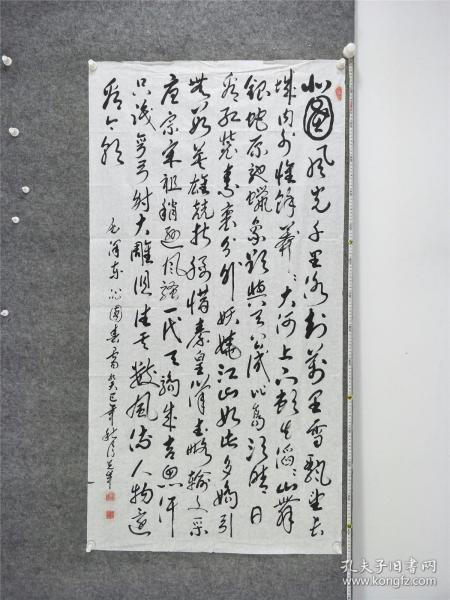 北國風光千里冰封萬里雪飄望長
城内外惟餘莽々大河上下頓失滔々山舞
銀蛇原馳蠟象欲與天公試比高須晴日
看紅裝素裹分外妖嬈江山如此多嬌引
無數英雄競折腰惜秦皇漢武略輸文采
唐宗宋祖稍遜風騷一代天驕成吉思汗
只識彎弓射大雕俱往矣數風流人物還
看今朝
毛澤東沁園春雪癸巳年秋月
孔夫子旧书网
www.kongfz.com